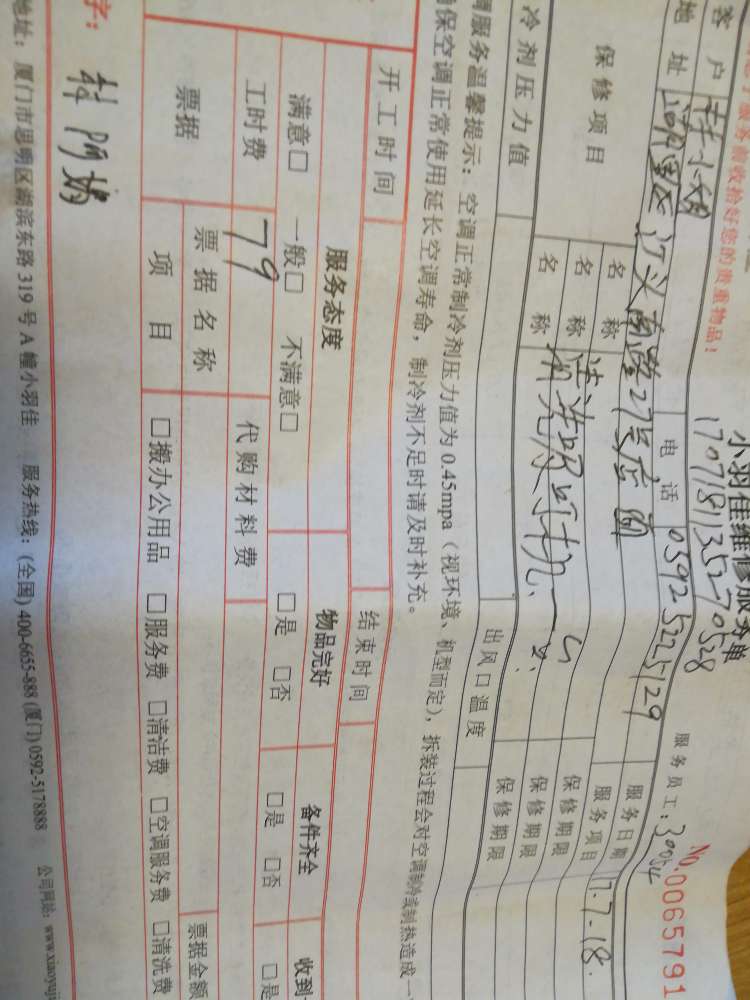 服务前收拾好您的贵重物品!
小羽佳维修服务单
No.0065791
17071813527 0528
服务员工:30054
客户 林小姐 电话 0592 5225129 服务日期 17.7.18.
地址 汀头南路27号店面 服务项目
保修项目 名称 清洗 保修期限
名称 保修期限
名称 保修期限
冷剂压力值 出风口温度
调服务温馨提示:空调正常制冷剂压力值为0.45mpa(视环境、机型而定),拆装过程会对空调制冷或制热造成一
保空调正常使用延长空调寿命,制冷剂不足时请及时补充。
开工时间 结束时间
服务态度 物品完好 备件齐全 收到
满意□ 一般□ 不满意□ □是 □否 □是 □否 □是
工时费 79 代购材料费
票据 票据名称 票据金额
项目 □搬办公用品 □服务费 □清洁费 □空调服务费 □清洗费
字: 林阿娇
地址:厦门市思明区湖滨东路319号A幢小羽佳 服务热线:(全国)400-6655-888(厦门)0592-5178888 公司网站:www.xiaoyuji